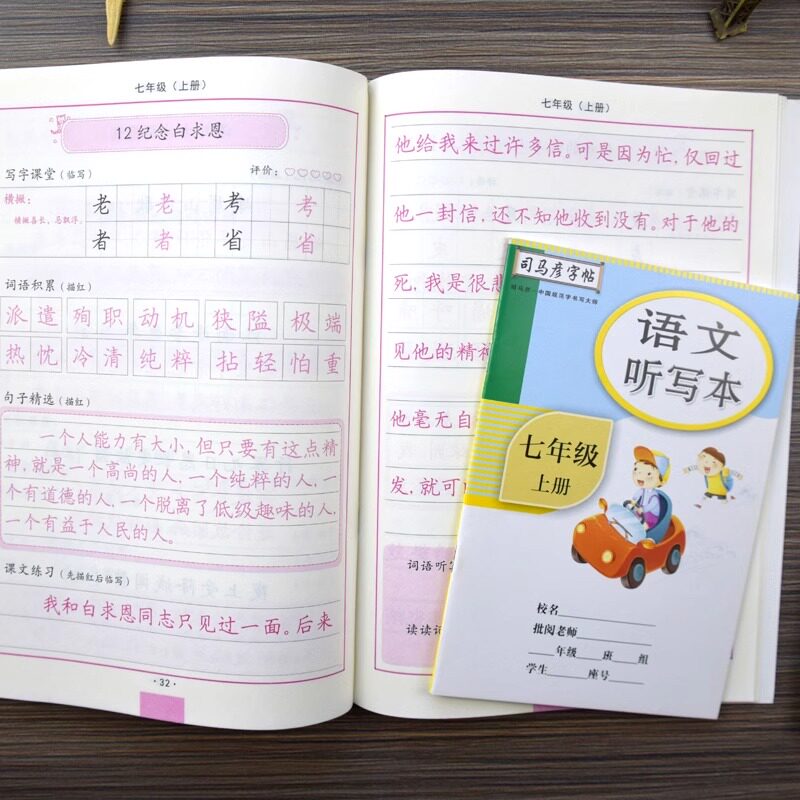 七年级（上册）
12 纪念白求恩
写字课堂（临写）
评价：
横撇：
横撇喜长，忌飘浮。
老 老 考 考
者 者 省 省
词语积累（描红）
派遣 殉职 动机 狭隘 极端
热忱 冷清 纯粹 拈轻怕重
句子精选（描红）
一个人能力有大小，但只要有这点精
神，就是一个高尚的人，一个纯粹的人，一
个有道德的人，一个脱离了低级趣味的人，
一个有益于人民的人。
课文练习（先描红后临写）
我和白求恩同志只见过一面。后来
·32·
七年级（上册）
他给我来过许多信。可是因为忙，仅回过
他一封信，还不知他收到没有。对于他的
死，我是很悲
见他的精神
他毫无自
发，就可
词语听写
读读记
司马彦字帖
司马彦·中国规范字书写大师
语文
听写本
七年级
上册
校名
批阅老师
年级 班 组
学生 座号